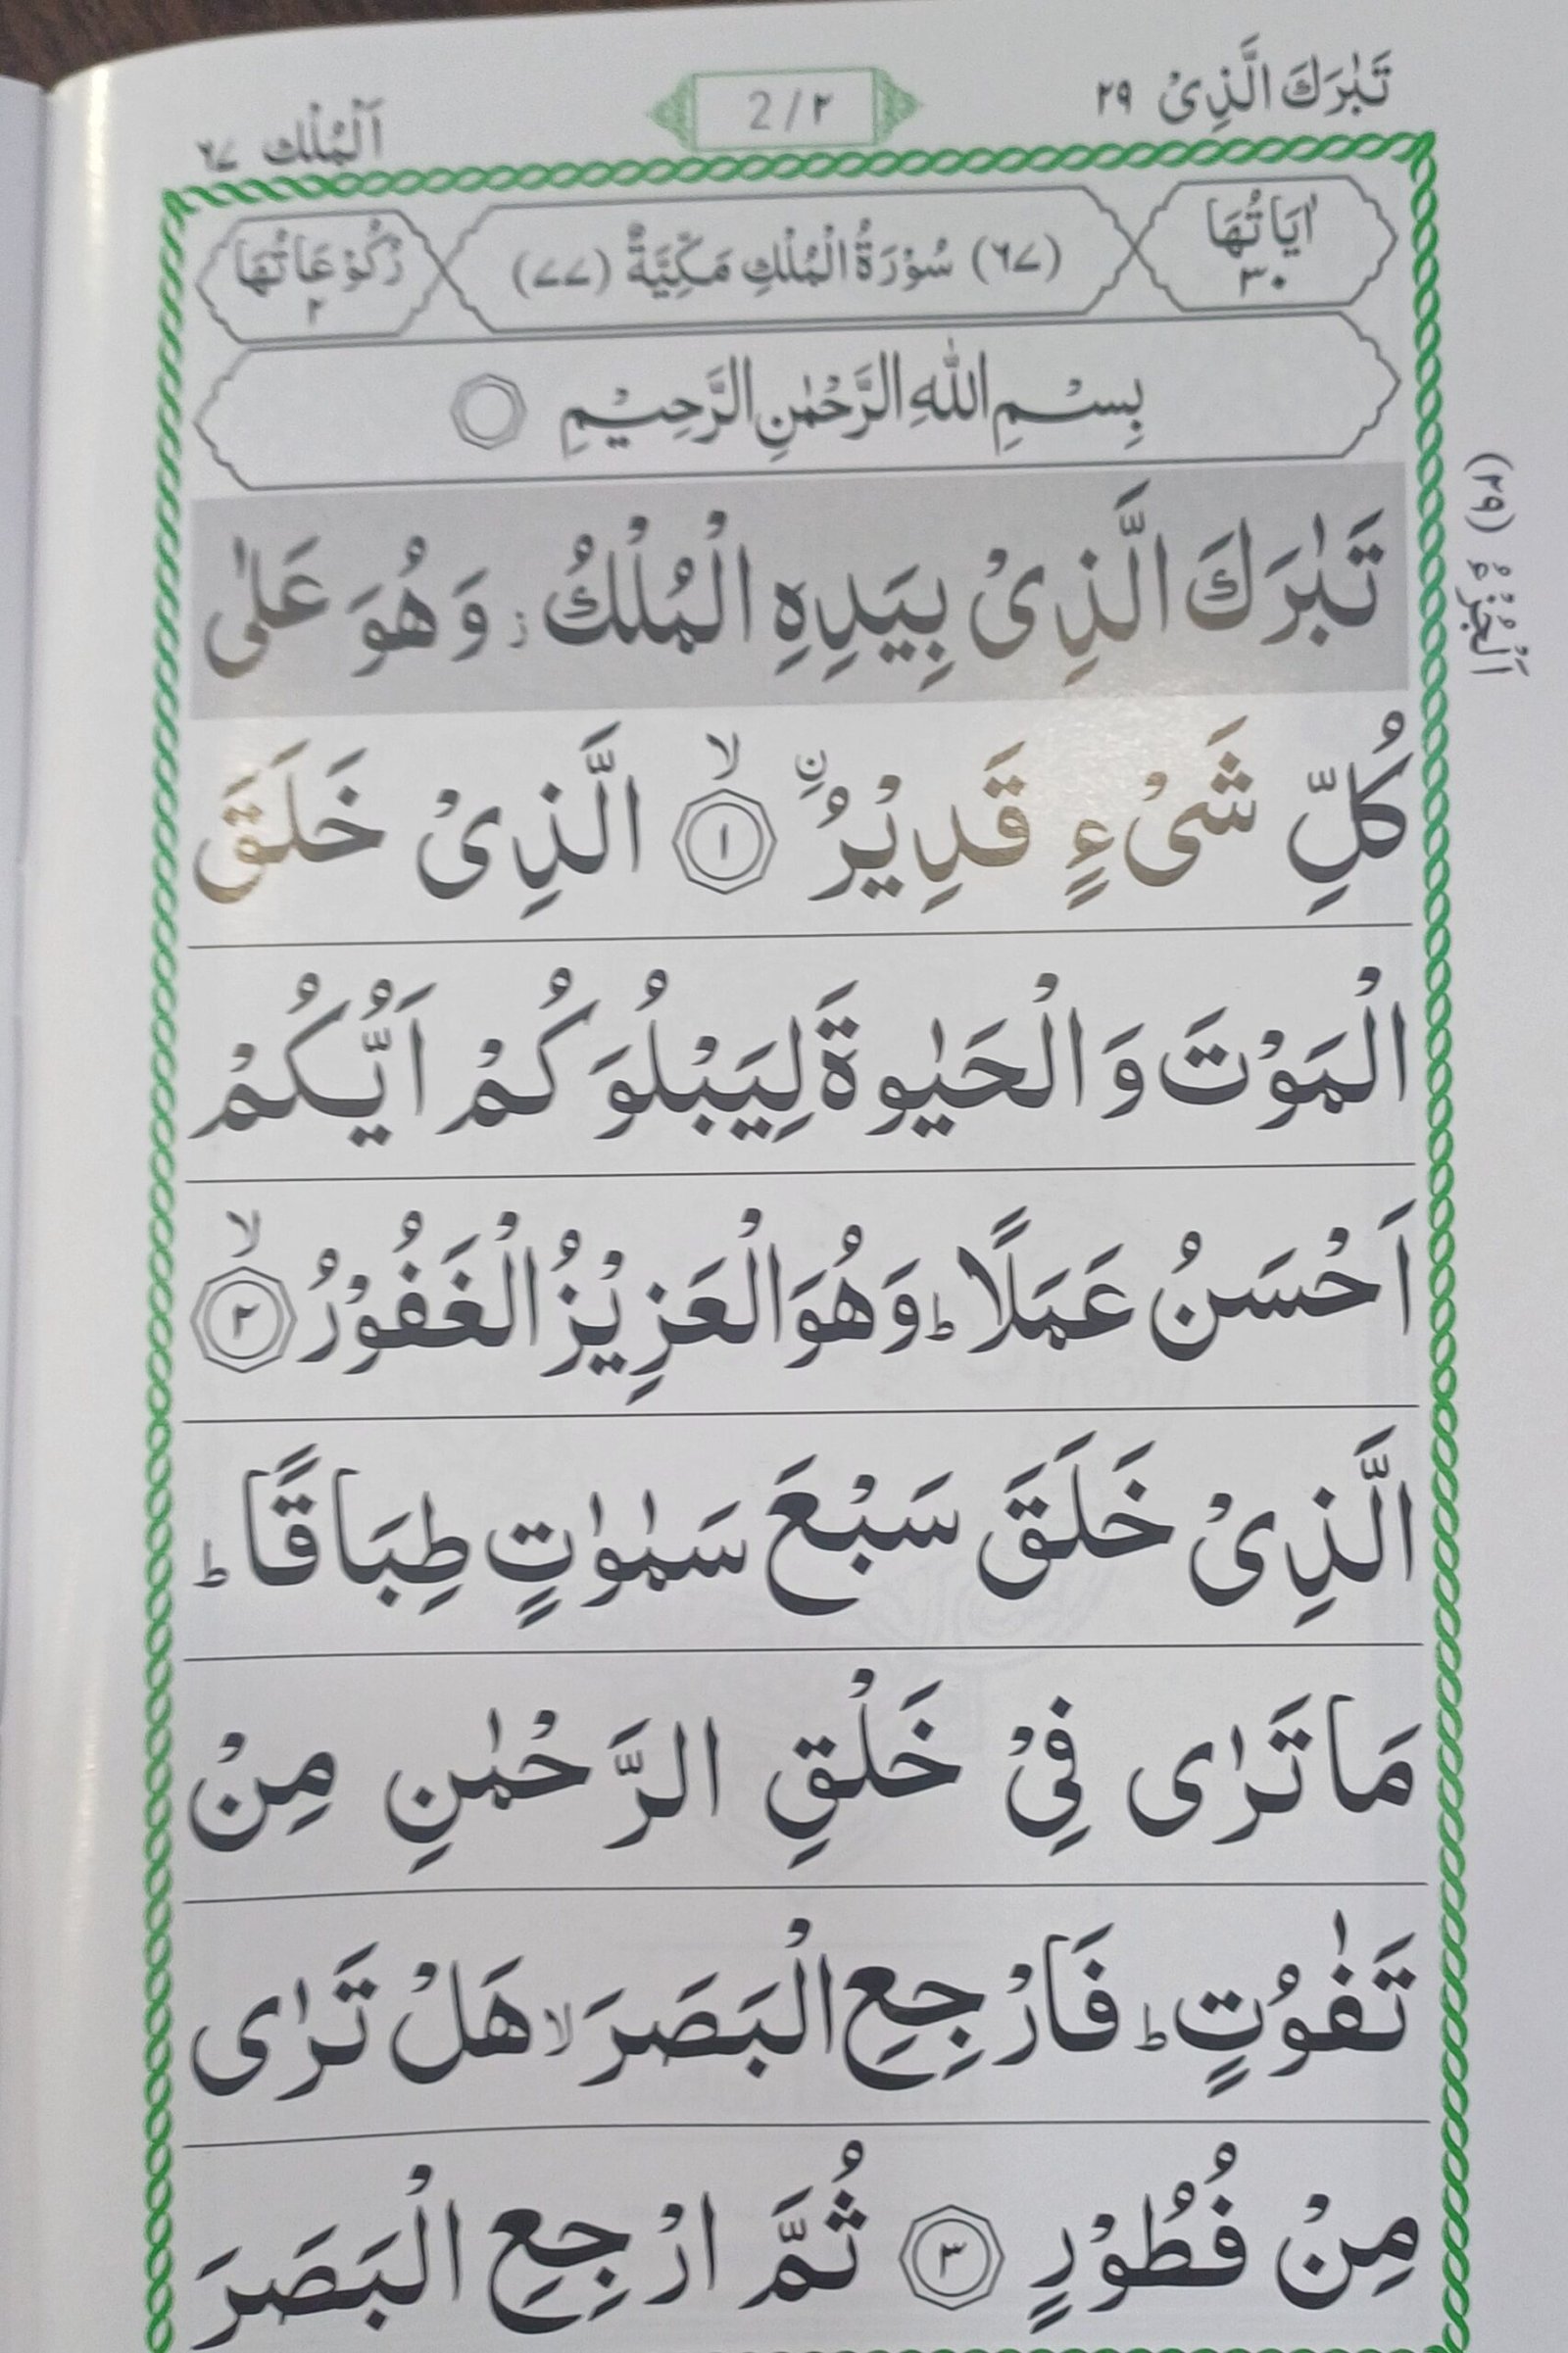 تَبٰرَكَ الَّذِىْ ٢٩
2/٢
اَلْمُلْك ٦٧
اٰيَاتُهَا ٣٠
(٦٧) سُوْرَةُ الْمُلْكِ مَكِّيَّةٌ (٧٧)
رُكُوْعَاتُهَا ٢
بِسْمِ اللّٰهِ الرَّحْمٰنِ الرَّحِيْمِ
تَبٰرَكَ الَّذِىْ بِيَدِهِ الْمُلْكُ ز وَهُوَ عَلٰى
كُلِّ شَىْءٍ قَدِيْرُ ۨ ۙ ١ الَّذِىْ خَلَقَ
الْمَوْتَ وَالْحَيٰوةَ لِيَبْلُوَكُمْ اَيُّكُمْ
اَحْسَنُ عَمَلًا ؕ وَهُوَ الْعَزِيْزُ الْغَفُوْرُ ۙ ٢
الَّذِىْ خَلَقَ سَبْعَ سَمٰوٰتٍ طِبَاقًا ؕ
مَا تَرٰى فِىْ خَلْقِ الرَّحْمٰنِ مِنْ
تَفٰوُتٍ ؕ فَارْجِعِ الْبَصَرَ ۙ هَلْ تَرٰى
مِنْ فُطُوْرٍ ٣ ثُمَّ ارْجِعِ الْبَصَرَ
اَلْجُزْءُ (٢٩)